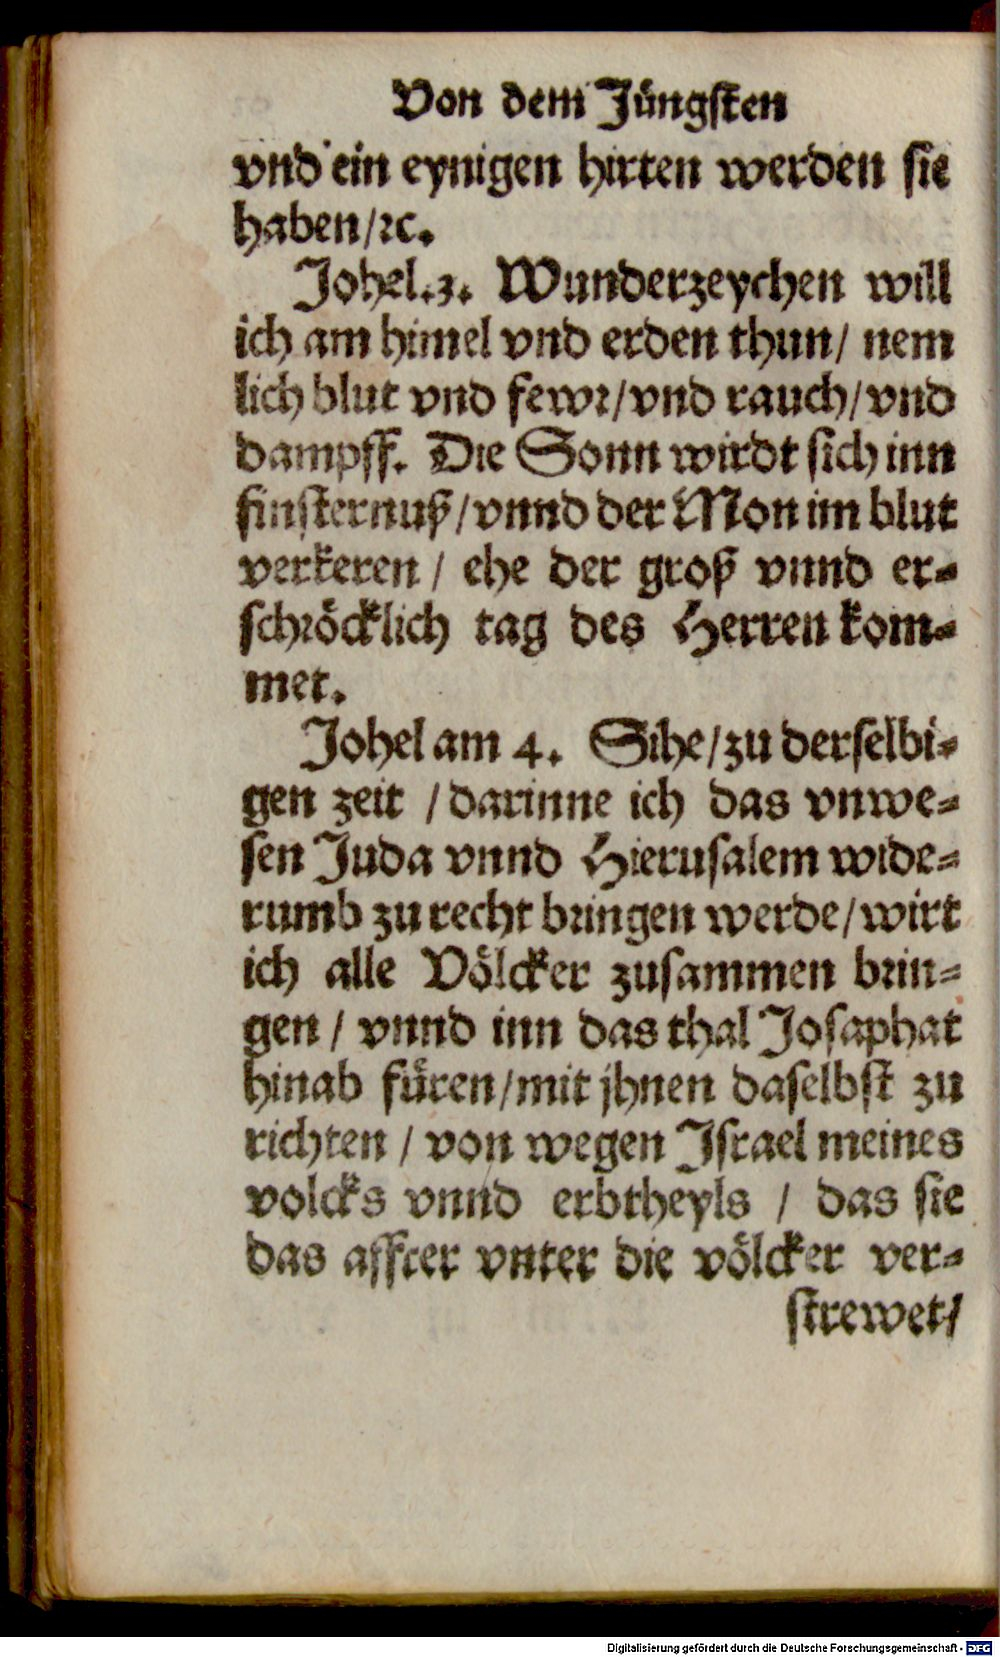 Von dem Jüngsten
vnd ein eynigen hirten werden sie
haben/ꝛc.
Johel.3. Wunderzeychen will
ich am himel vnd erden thun/ nem
lich blut vnd fewr/vnd rauch/vnd
dampff. Die Sonn wirdt sich inn
finsternuß/vnnd der Mon im blut
verkeren/ ehe der groß vnnd er-
schröcklich tag des Herren kom-
met.
Johel am 4. Sihe/zu derselbi-
gen zeit /darinne ich das vnwe-
sen Juda vnnd Hierusalem wide-
rumb zu recht bringen werde/wirt
ich alle Völcker zusammen brin-
gen/ vnnd inn das thal Josaphat
hinab füren/mit jhnen daselbst zu
richten/ von wegen Israel meines
volcks vnnd erbtheyls / das sie
das affter vnter die völcker ver-
strewet/
Digitalisierung gefördert durch die Deutsche Forschungsgemeinschaft - DFG